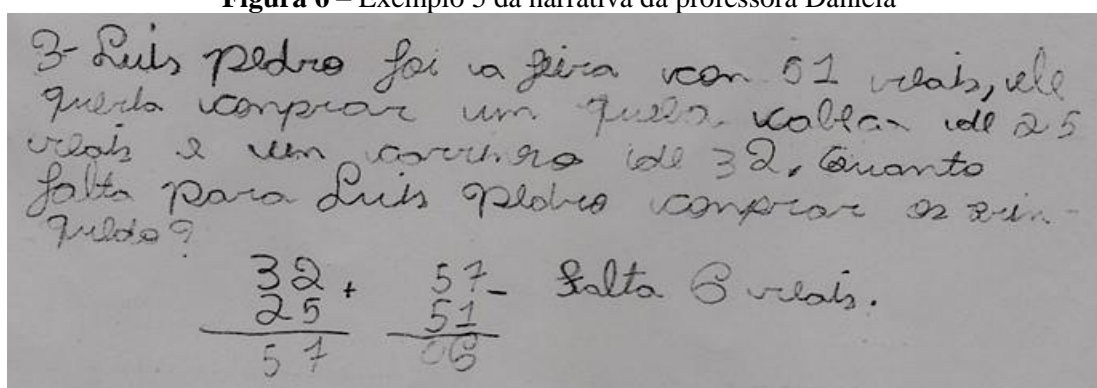 Figura 6 – Exemplo 5 da narrativa da professora Daniela
3- Luis Pedro foi a feira con 51 reais, ele
queria conprar um de 25
reais e um carrinho de 32, Quanto
falta para Luis Pedro conprar os brin-
quedo?
32 + 57 - Falta 6 reais.
25 51
57 06